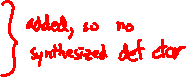 added, so no
synthesized def ctor